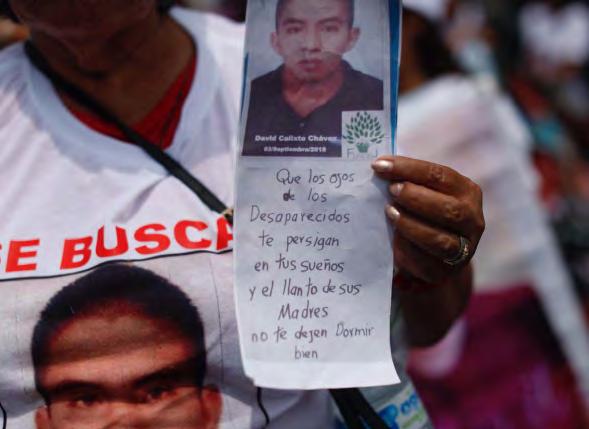 David Calixto Chávez
03/Septiembre/2018
SE BUSCA
Que los ojos
de los
Desaparecidos
te persigan
en tus sueños
y el llanto de sus
Madres
no te dejen Dormir
bien